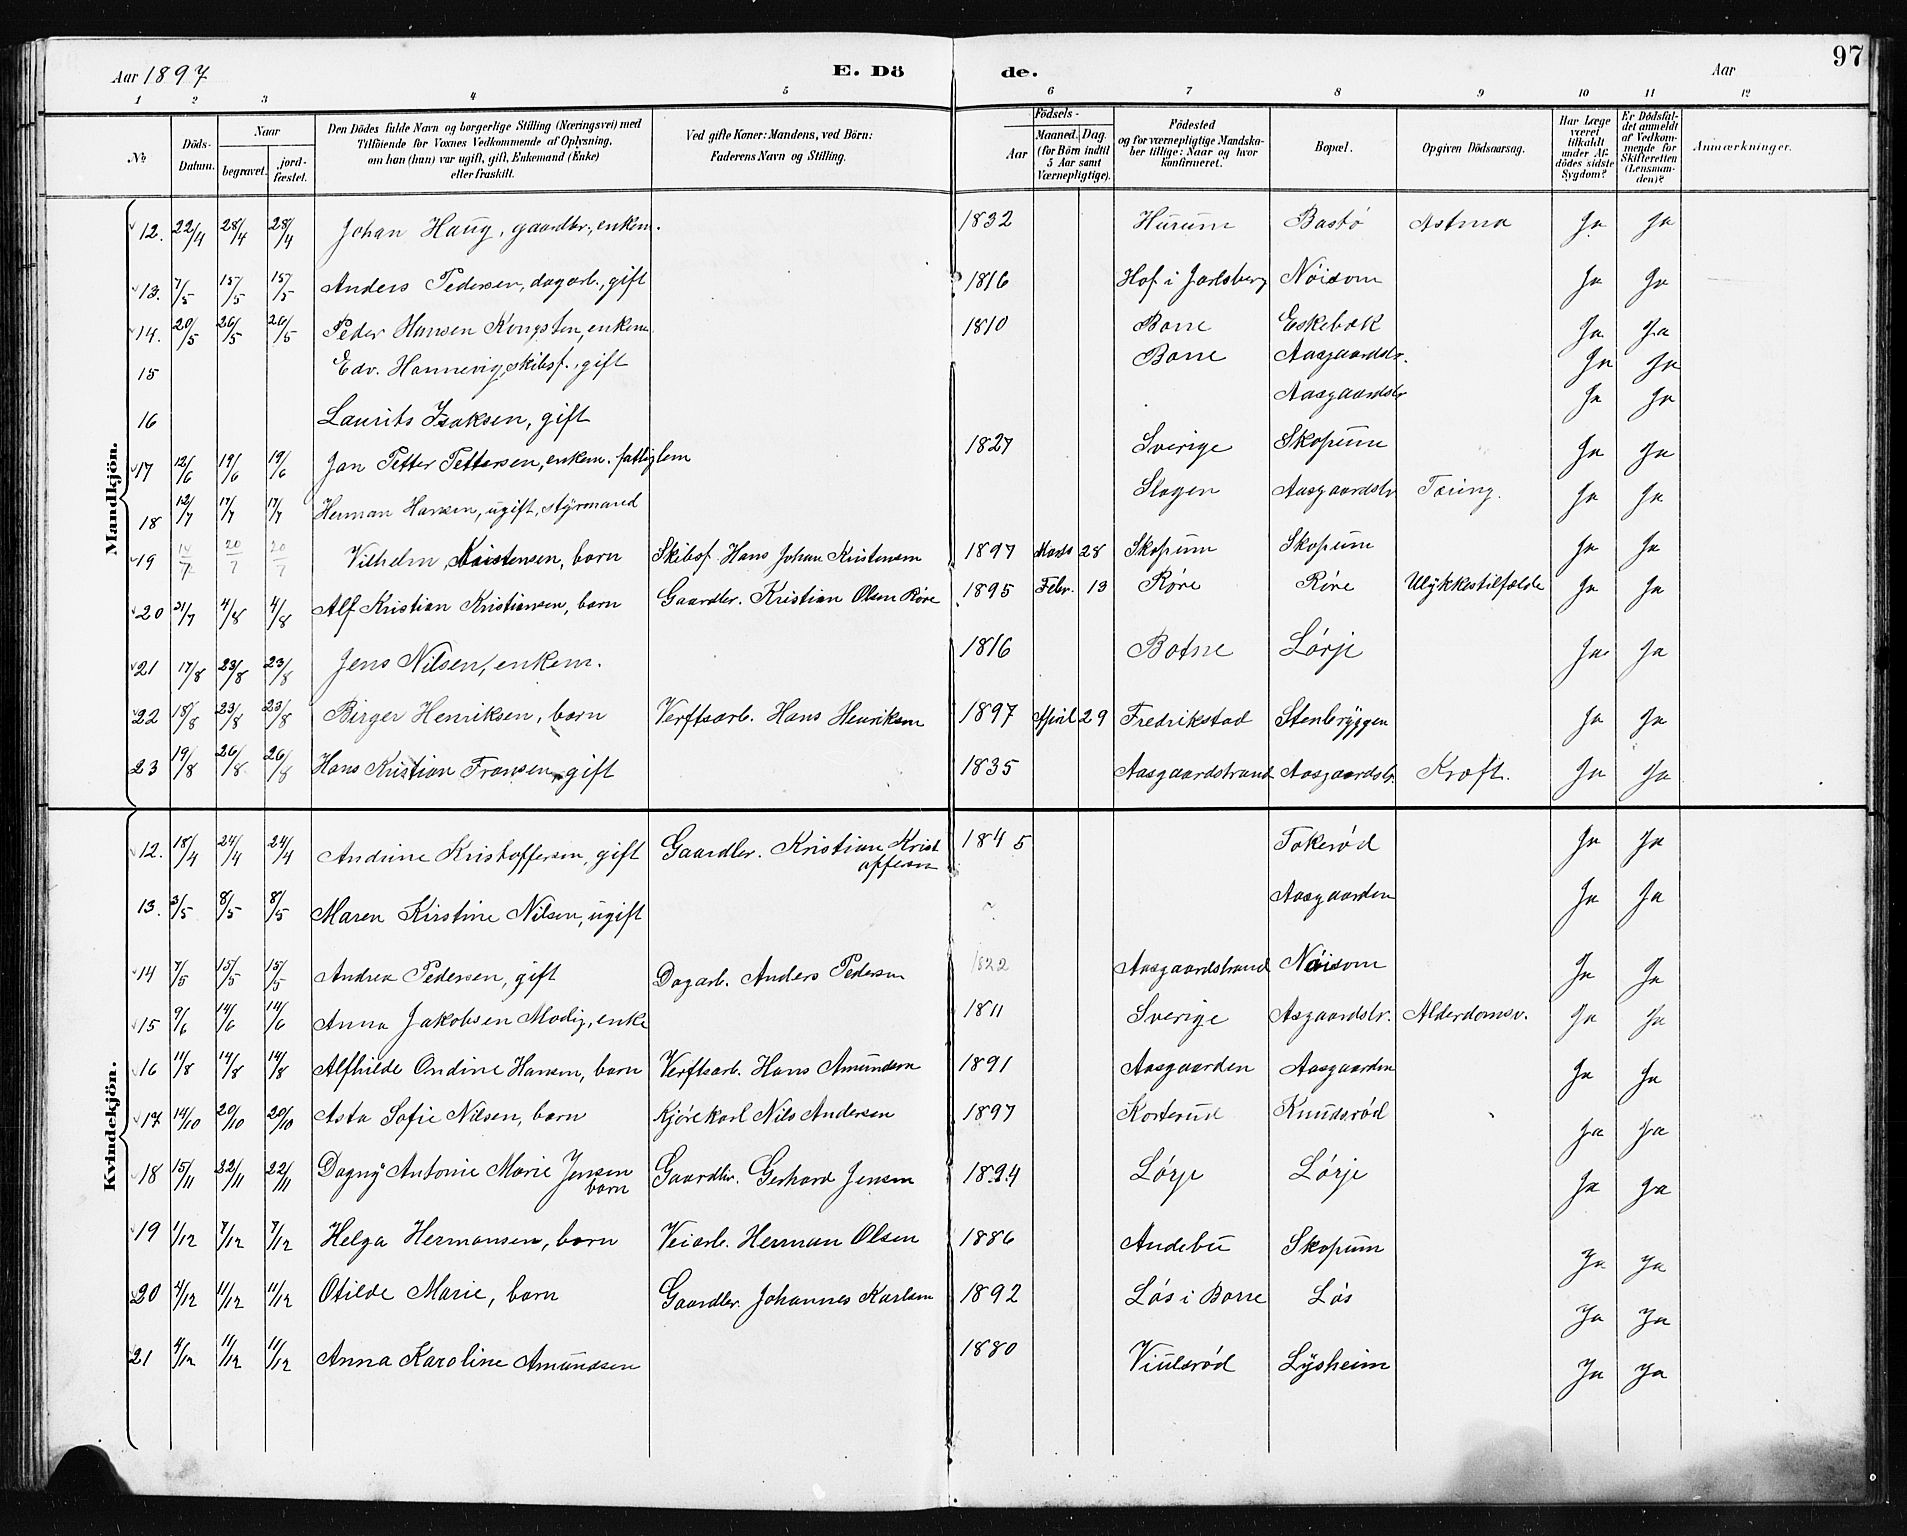 97
Aar 1897 E. Dö de. Aar
1 2 3 4 5 6 7 8 9 10 11 12
No Döds-Datum. Naar begravet. jord-fæstet. Den Dödes fulde Navn og borgerlige Stilling (Næringsvei) med Tilföiende for Voxnes Vedkommende af Oplysning, om hun (han) var ugift, gift, Enkemand (Enke) eller fraskilt. Ved gifte Koner: Mandens, ved Börn: Faderens Navn og Stilling. Födsels- Aar Maaned. Dag. (for Börn indtil 5 Aar samt Værnepligtige). Födested og for værnepligtige Mandskaber tillige: Naar og hvor konfirmeret. Bopæl. Opgiven Dödsaarsag. Har Læge været tilkaldt under Afdödes sidste Sygdom? Er Dödsfaldet anmeldt af Vedkommende for Skifteretten (Lensmanden)? Anmærkninger.
Mandkjön.
12. 22/4 28/4 28/4 Johan Haug, gaardbr., enkem. 1832 Hurum Bastö Astma Ja Ja
13. 7/5 15/5 15/5 Anders Pedersen, dagarb., gift 1816 Hof i Jarlsberg Nöisom Ja Ja
14. 20/5 26/5 26/5 Peder Hansen Kongsten, enkem 1810 Borre Eskebæk Ja Ja
15 Edv. Hannevig, skibsf., gift Borre Aasgaardstr. Ja Ja
16 Laurits Isaksen, gift Aasgaardstr Ja Ja
17 12/6 19/6 19/6 Jan Petter Pettersen, enkem. fattiglem 1827 Sverige Skopum Ja Ja
18 12/7 17/7 17/7 Herman Hansen, ugift, styrmand Slagen Aasgaardstr Tæring. Ja Ja
19 14/7 20/7 20/7 Vilhelm Kristensen, barn Skibsf. Hans Johan Kristensen 1897 Marts 28 Skopum Skopum Ja Ja
20 31/7 4/8 4/8 Alf Kristian Kristiansen, barn Gaardbr. Kristian Olsen Röre 1895 Febr. 13 Röre Röre Ulykkestilfælde Ja Ja
21 17/8 23/8 23/8 Jens Nilsen, enkem. 1816 Botne Lörje Ja Ja
22 18/8 23/8 23/8 Birger Henriksen, barn Verftsarb. Hans Henriksen 1897 April 29 Fredrikstad Stenbryggen Ja Ja
23 19/8 26/8 26/8 Hans Kristian Fransen, gift 1835 Aasgaardstrand Aasgaardstr. Kræft. Ja Ja
Kvindekjön.
12. 18/4 24/4 24/4 Andrine Kristoffersen, gift Gaardbr. Kristian Kristoffersen 1845 Tokeröd Ja Ja
13. 3/5 8/5 8/5 Maren Kirstine Nilsen, ugift Aasgaarden Ja Ja
14 7/5 15/5 15/5 Andrea Pedersen, gift Dagarb. Anders Pedersen 1822 Aasgaardstrand Nöisom Ja Ja
15 9/6 14/6 14/6 Anna Jakobsen Modig, enke 1811 Sverige Aasgaardstr. Alderdomsv. Ja Ja
16 11/8 14/8 14/8 Alfhilde Ondine Hansen, barn Verftsarb. Hans Amundsen 1891 Aasgaarden Aasgaarden Ja Ja
17 14/10 20/10 20/10 Asta Sofie Nilsen, barn Kjörekarl Nils Andersen 1897 Korterud Knudsröd Ja Ja
18 15/11 22/11 22/11 Dagny Antonie Marie Jensen barn Gaardbr. Gerhard Jensen 1894 Lörje Lörje Ja Ja
19 1/12 7/12 7/12 Helga Hermansen, barn Veiarb. Herman Olsen 1886 Andebu Skopum Ja Ja
20 4/12 11/12 11/12 Otilde Marie, barn Gaardbr. Johannes Karlsen 1892 Lös i Borre Lös Ja Ja
21 4/12 11/12 11/12 Anna Karoline Amundsen 1880 Viulsröd Lysheim Ja Ja